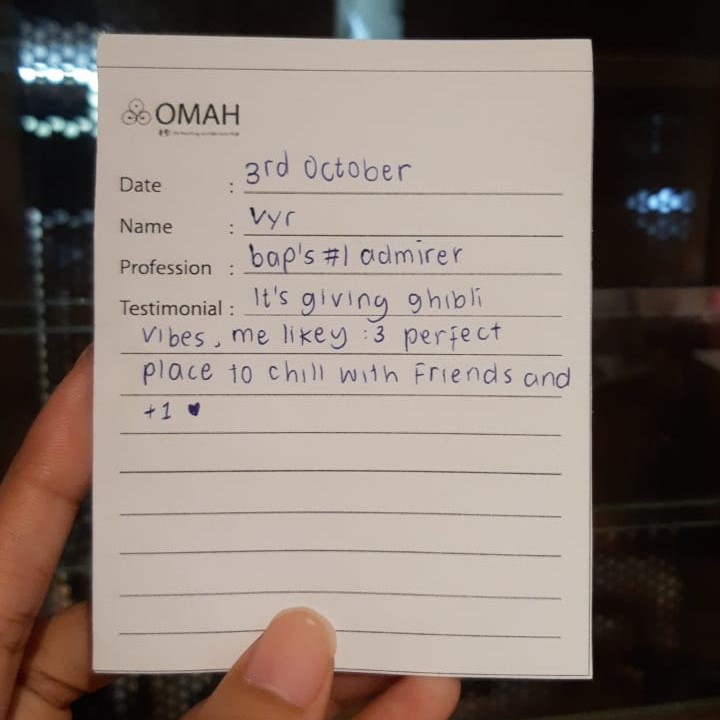 OMAH
Date : 3rd October
Name : Vyr
Profession : bap's #1 admirer
Testimonial : It's giving ghibli
vibes, me likey :3 perfect
place to chill with Friends and
+1 ♥